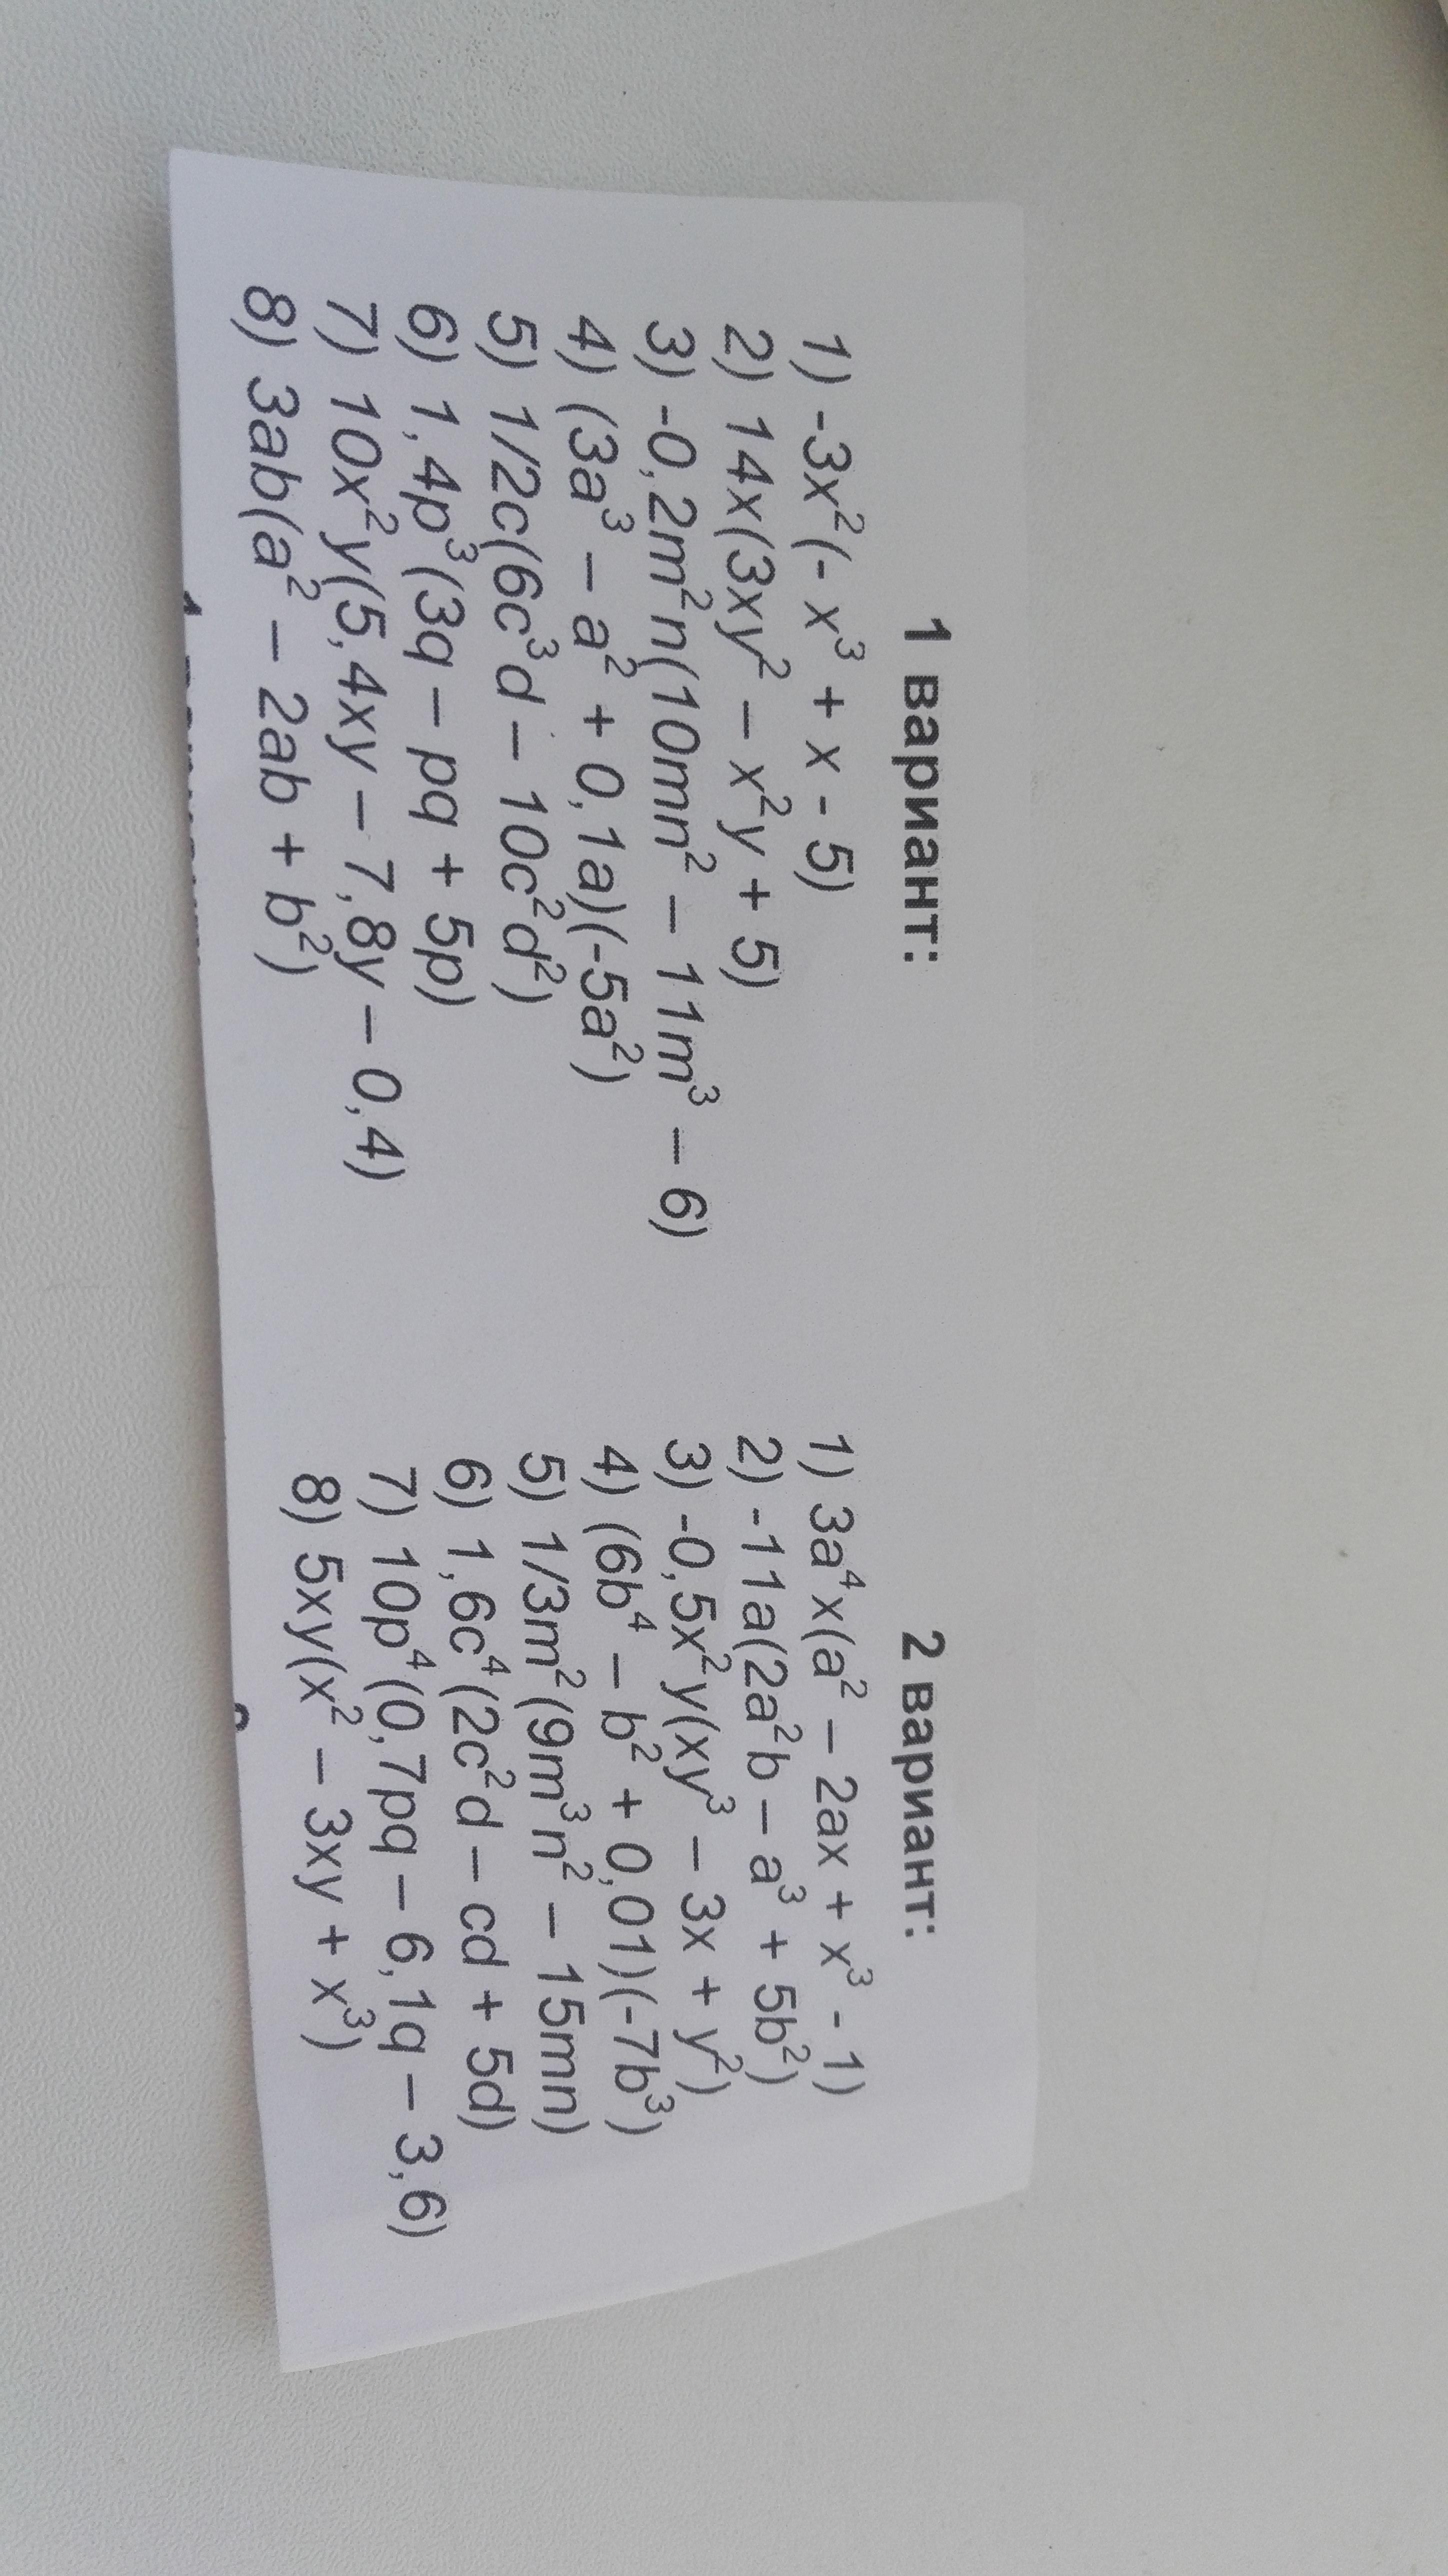 1 вариант:
1) -3x²(- x³ + x - 5)
2) 14x(3xy² – x²y + 5)
3) -0,2m²n(10mn² – 11m³ – 6)
4) (3a³ – a² + 0,1a)(-5a²)
5) 1/2c(6c³d – 10c²d²)
6) 1,4p³(3q – pq + 5p)
7) 10x²y(5,4xy – 7,8y – 0,4)
8) 3ab(a² – 2ab + b²)
2 вариант:
1) 3a⁴x(a² – 2ax + x³ - 1)
2) -11a(2a²b – a³ + 5b²)
3) -0,5x²y(xy³ – 3x + y²)
4) (6b⁴ – b² + 0,01)(-7b³)
5) 1/3m²(9m³n² – 15mn)
6) 1,6c⁴(2c²d – cd + 5d)
7) 10p⁴(0,7pq – 6,1q – 3,6)
8) 5xy(x² – 3xy + x³)